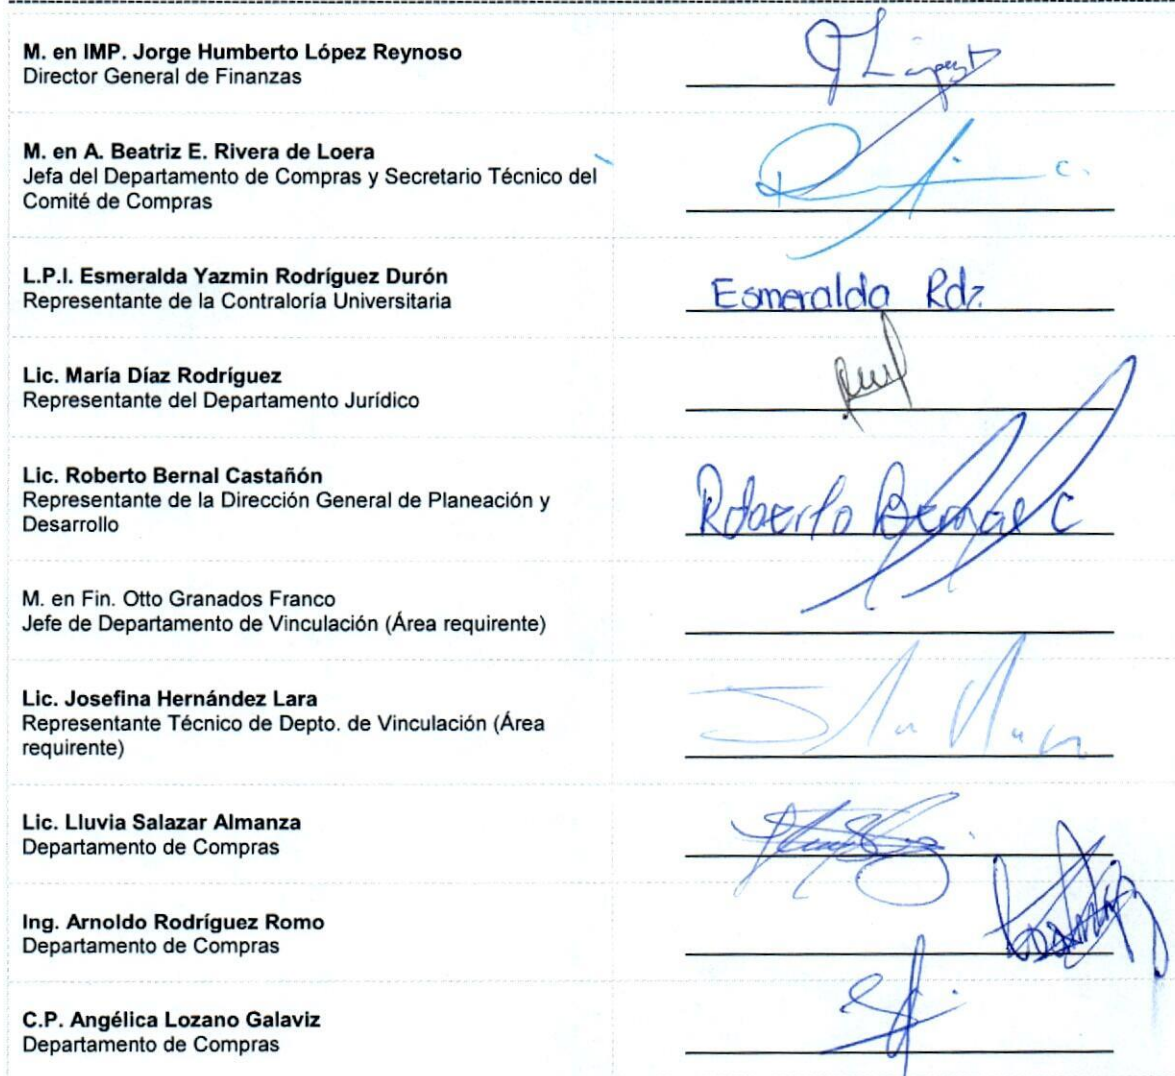 M. en IMP. Jorge Humberto López Reynoso
Director General de Finanzas
M. en A. Beatriz E. Rivera de Loera
Jefa del Departamento de Compras y Secretario Técnico del
Comité de Compras
L.P.I. Esmeralda Yazmin Rodríguez Durón
Representante de la Contraloría Universitaria
Esmeralda Rdz.
Lic. María Díaz Rodríguez
Representante del Departamento Jurídico
Lic. Roberto Bernal Castañón
Representante de la Dirección General de Planeación y
Desarrollo
Roberto Bernal C
M. en Fin. Otto Granados Franco
Jefe de Departamento de Vinculación (Área requirente)
Lic. Josefina Hernández Lara
Representante Técnico de Depto. de Vinculación (Área
requirente)
Lic. Lluvia Salazar Almanza
Departamento de Compras
Ing. Arnoldo Rodríguez Romo
Departamento de Compras
C.P. Angélica Lozano Galaviz
Departamento de Compras